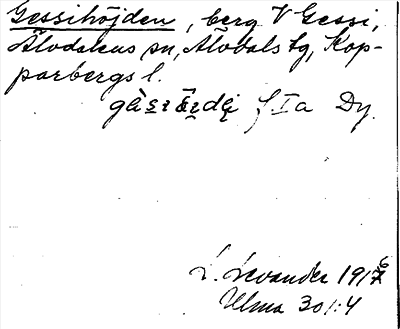 Gessihöjden, berg V Gessi,
Älvdalens sn, Älvdals tg, Kop-
parbergs l.
f I a Dy.
L. Levander 1916
Ulma 301:4